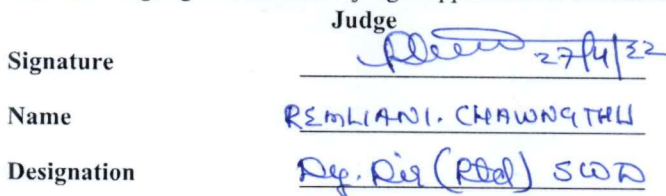 Judge
Signature 27/4/22
Name REMLIANI. CHAWNGTHU
Designation Dy. Dir (Rtd) SWD